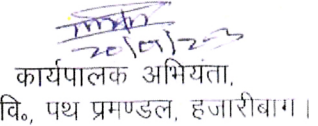 20/09/23
कार्यपालक अभियंता,
वि०, पथ प्रमण्डल, हजारीबाग।